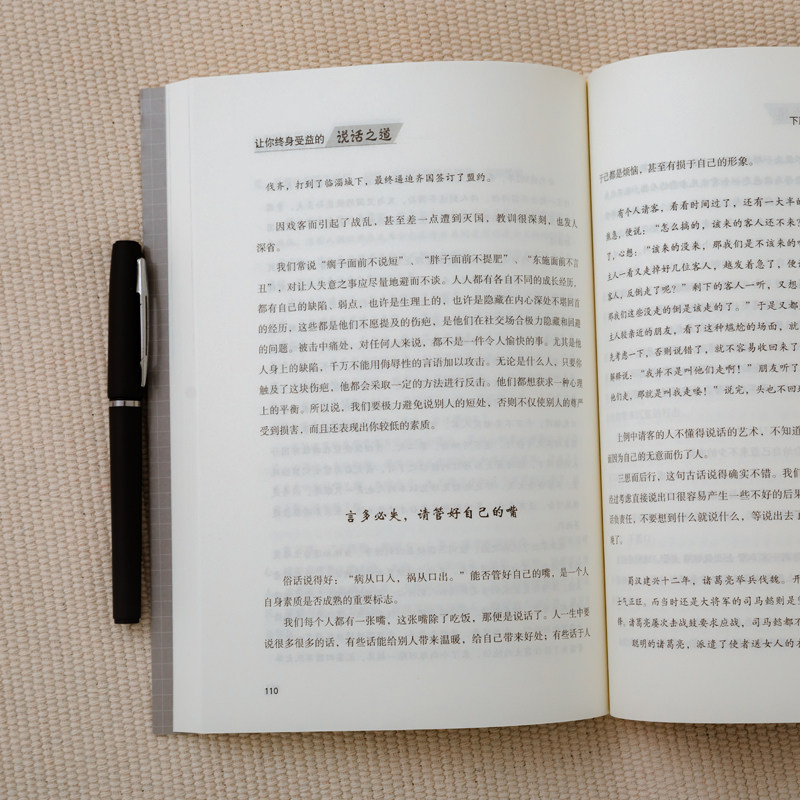 让你终身受益的 说话之道
伐齐，打到了临淄城下，最终逼迫齐国签订了盟约。
因戏客而引起了战乱，甚至差一点遭到灭国，教训很深刻，也发人
深省。
我们常说“瘸子面前不说短”、“胖子面前不提肥”、“东施面前不言
丑”，对让人失意之事应尽量地避而不谈。人人都有各自不同的成长经历，
都有自己的缺陷、弱点，也许是生理上的，也许是隐藏在内心深处不堪回首
的经历，这些都是他们不愿提及的伤疤，是他们在社交场合极力隐藏和回避
的问题。被击中痛处，对任何人来说，都不是一件令人愉快的事。尤其是他
人身上的缺陷，千万不能用侮辱性的言语加以攻击。无论是什么人，只要你
触及了这块伤疤，他都会采取一定的方法进行反击。他们都想获求一种心理
上的平衡。所以说，我们要极力避免说别人的短处，否则不仅使别人的尊严
受到损害，而且还表现出你较低的素质。
言多必失，请管好自己的嘴
俗话说得好：“病从口入，祸从口出。”能否管好自己的嘴，是一个人
自身素质是否成熟的重要标志。
我们每个人都有一张嘴，这张嘴除了吃饭，那便是说话了。人一生中要
说很多很多的话，有些话能给别人带来温暖，给自己带来好处；有些话于人
110
下
于己都是烦恼，甚至有损于自己的形象。
有个人请客，看看时间过了，还有一大半的
焦急，便说：“怎么搞的，该来的客人还不来？
了，心想：“该来的没来，那我们是不该来的
主人一看又走掉好几位客人，越发着急了，便
客人，反倒走了呢？”剩下的客人一听，又想
那我们这些没走的倒是该走的了。”于是又都
主人较亲近的朋友，看了这种尴尬的场面，就
先考虑一下，否则说错了，就不容易收回来了
解释说：“我并不是叫他们走啊！”朋友听了
他们走，那就是叫我走喽！”说完，头也不回
上例中请客的人不懂得说话的艺术，不知道
而因为自己的无意而伤了人。
三思而后行，这句古话说得确实不错。我们
经过考虑直接说出口很容易产生一些不好的后果
话负责任，不要想到什么就说什么，等说出去
晚了。
蜀汉建兴十二年，诸葛亮举兵伐魏。开
士气正旺。而当时还是大将军的司马懿则是
锋。诸葛亮屡次击战鼓要求应战，司马懿都不
聪明的诸葛亮，派遣了使者送女人的